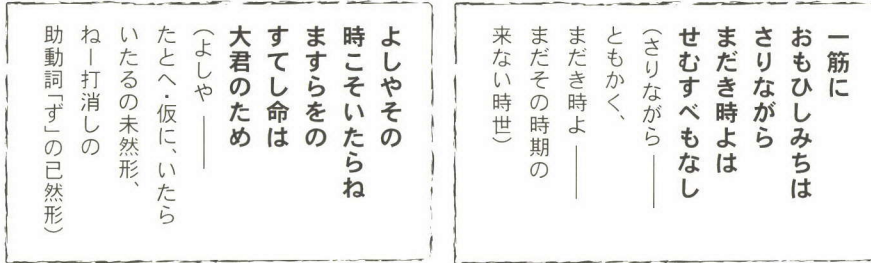 一筋に
おもひしみちは
さりながら
まだき時よは
せむすべもなし
（さりながら――
ともかく、
まだき時よ――
まだその時期の
来ない時世）
よしやその
時こそいたらね
ますらをの
すてし命は
大君のため
（よしや――
たとへ・仮に、いたら
いたるの未然形、
ねー打消しの
助動詞「ず」の已然形）